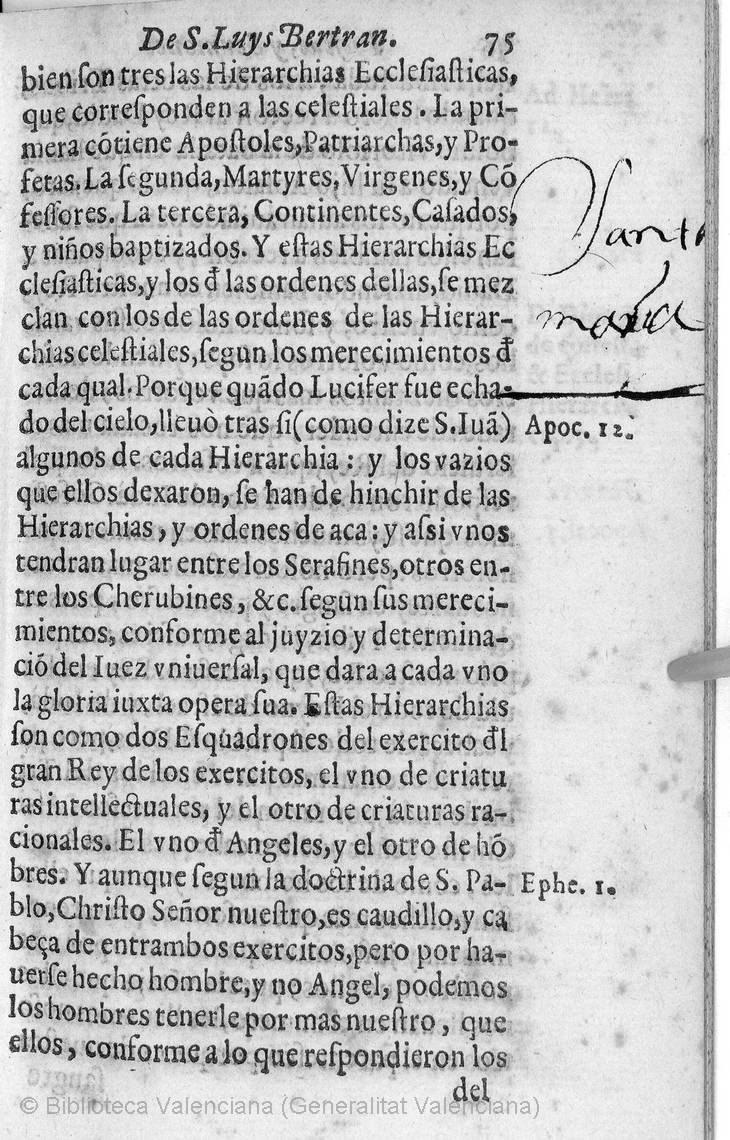 De S. Luys Bertran. 75
bien ſon tres las Hierarchias Eccleſiaſticas,
que correſponden a las celeſtiales. La pri-
mera cõtiene Apoſtoles, Patriarchas, y Pro-
fetas. La ſegunda, Martyres, Virgenes, y Cõ
feſſores. La tercera, Continentes, Caſados,
y niños baptizados. Y eſtas Hierarchias Ec
cleſiaſticas, y los đ las ordenes dellas, ſe mez
clan con los de las ordenes de las Hierar-
chias celeſtiales, ſegun los merecimientos đ
cada qual. Porque quãdo Lucifer fue echa-
do del cielo, lleuò tras ſi (como dize S. Iuã)
algunos de cada Hierarchia: y los vazios
que ellos dexaron, ſe han de hinchir de las
Hierarchias, y ordenes de aca: y aſsi vnos
tendran lugar entre los Serafines, otros en-
tre los Cherubines, &c. ſegun ſus mereci-
mientos, conforme al juyzio y determina-
ciõ del Iuez vniuerſal, que dara a cada vno
la gloria iuxta opera ſua. Eſtas Hierarchias
ſon como dos Eſquadrones del exercito đl
gran Rey de los exercitos, el vno de criatu
ras intellectuales, y el otro de criaturas ra-
cionales. El vno đ Angeles, y el otro de hõ
bres. Y aunque ſegun la doctrina de S. Pa-
blo, Chriſto Señor nueſtro, es caudillo, y ca
beça de entrambos exercitos, pero por ha-
uerſe hecho hombre, y no Angel, podemos
los hombres tenerle por mas nueſtro, que
ellos, conforme a lo que reſpondieron los
del
Santa
maria
Apoc. 12.
Ephe. 1.
© Biblioteca Valenciana (Generalitat Valenciana)